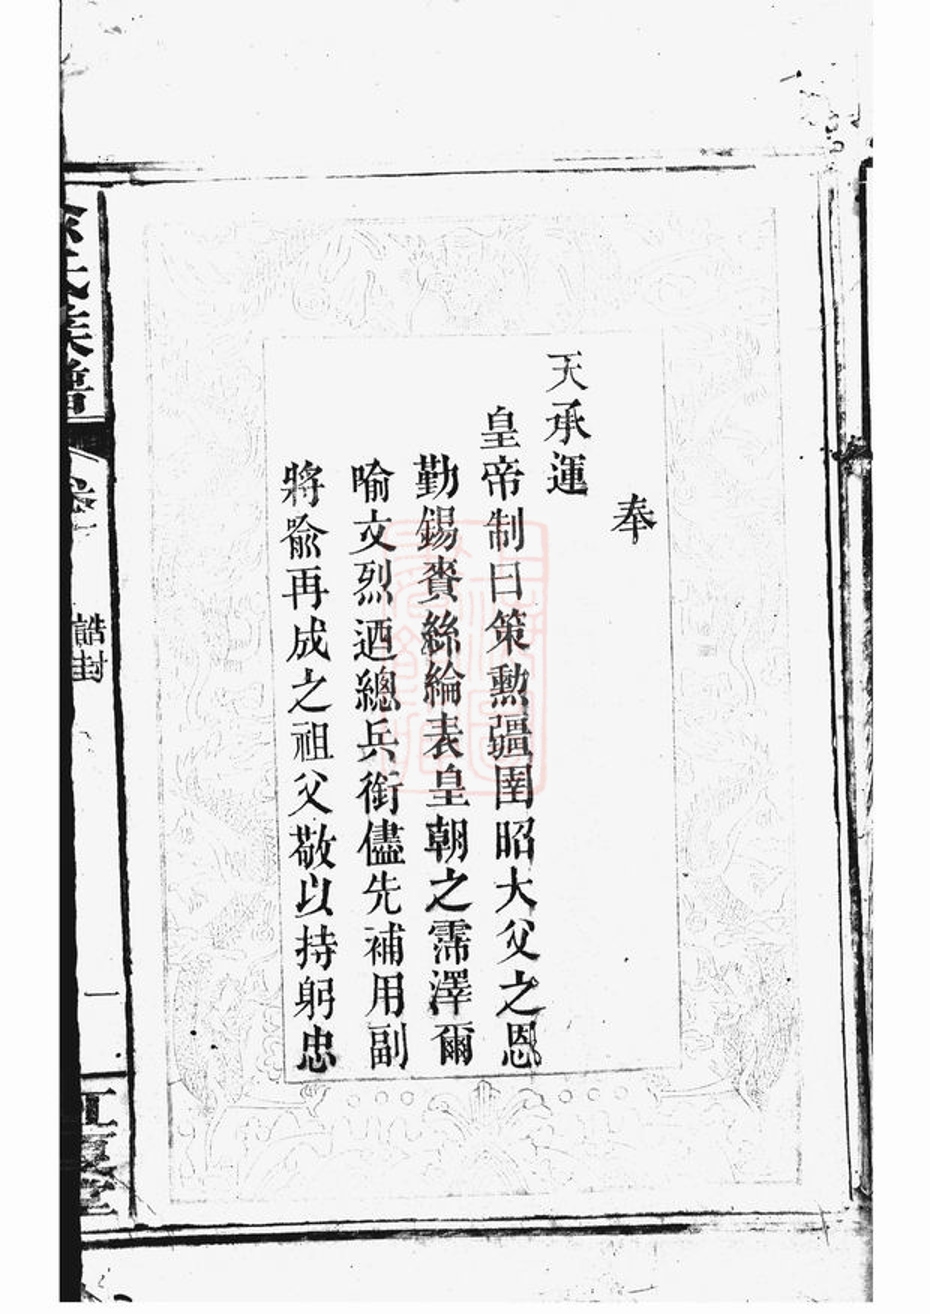 奉
天承運
皇帝制曰策勲疆圉昭大父之恩
勤錫賚絲綸表皇朝之霈澤爾
喻文烈迺總兵銜儘先補用副
將喻再成之祖父敬以持躬忠
氏族譜
誥封
一
江夏堂